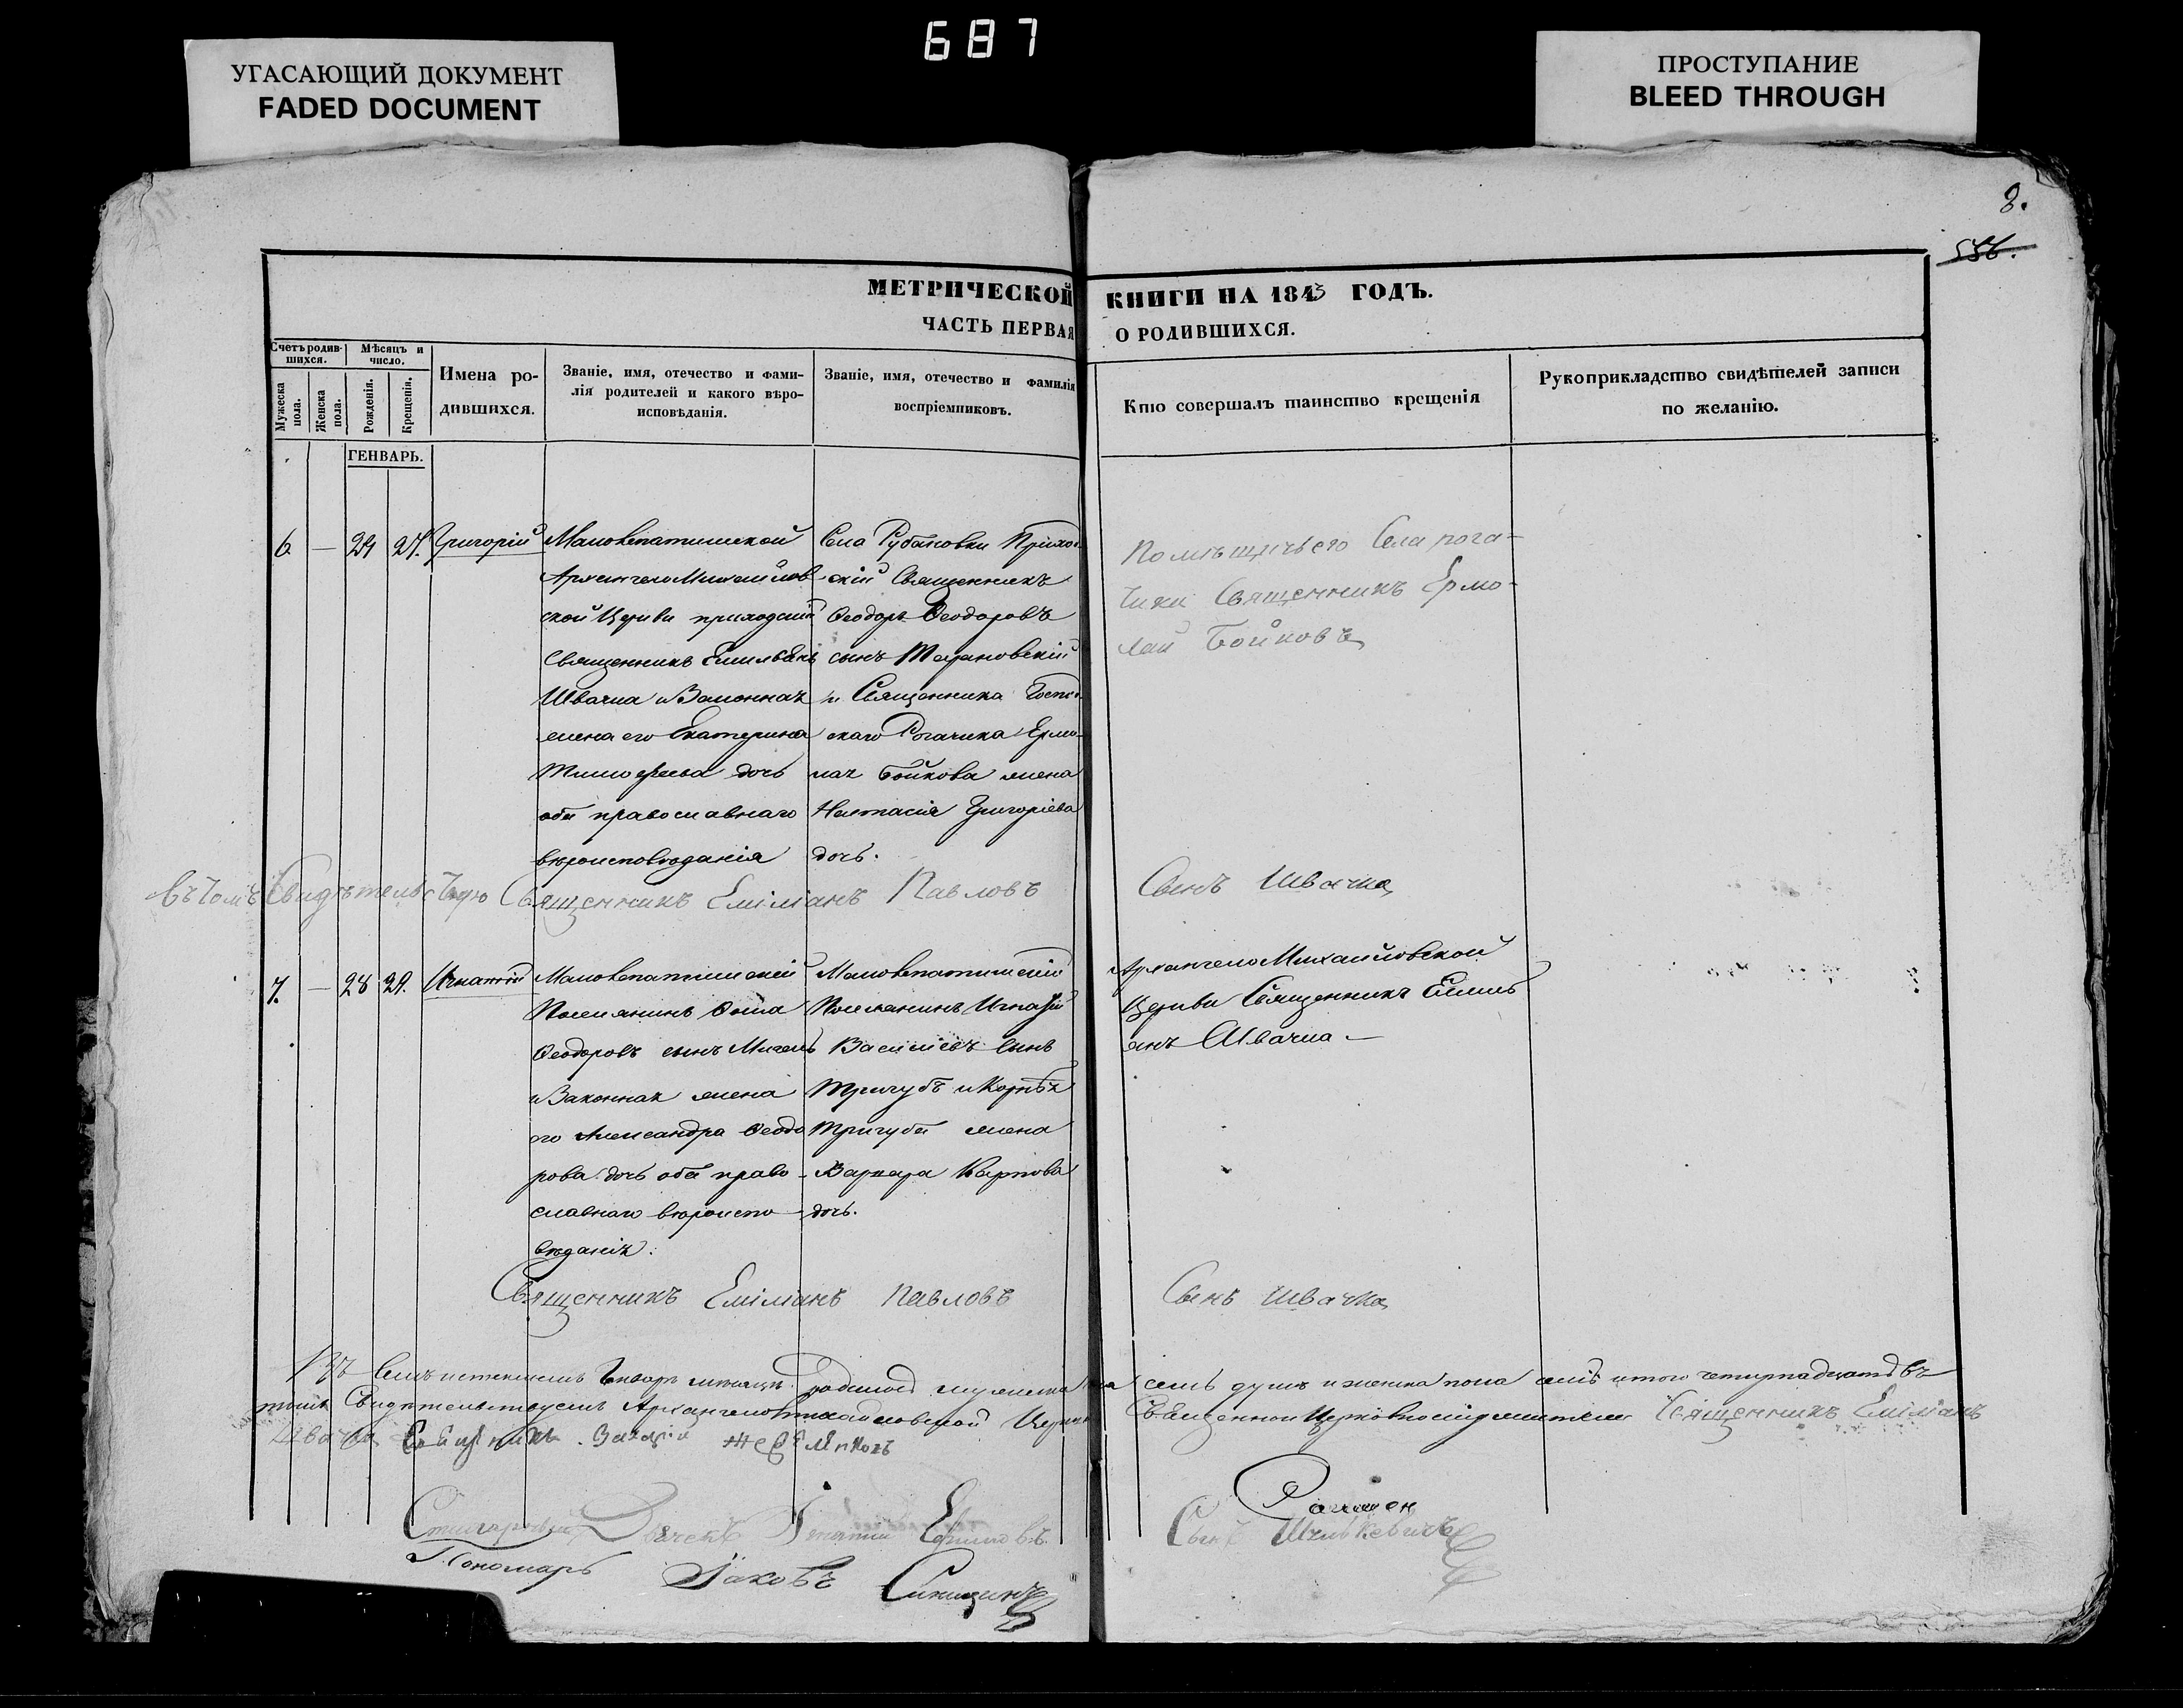 687
УГАСАЮЩИЙ ДОКУМЕНТ
FADED DOCUMENT
ПРОСТУПАНИЕ
BLEED THROUGH
8.
556.
МЕТРИЧЕСКОЙ КНИГИ НА 1843 ГОДЪ.
ЧАСТЬ ПЕРВАЯ О РОДИВШИХСЯ.
Счетъ родив-
шихся.
Мужеска
пола.
Женска
пола.
Мѣсяцъ и
число.
Рожденія.
Крещенія.
Имена ро-
дившихся.
Званіе, имя, отечество и фами-
лія родителей и какого вѣро-
исповѣданія.
Званіе, имя, отечество и фамилія
воспріемниковъ.
Кто совершалъ таинство крещенія
Рукоприкладство свидѣтелей записи
по желанію.
ГЕНВАРЬ.
6. — 24 27. Григорій
Малолепатишской
АрхангелоМихайлов
ской Церкви приходскій
Священникъ Емильянъ
Швачка и Законная
жена его Екатерина
Тимофеева дочь
оба православнаго
вѣроисповѣданія
Села Рубановки Приход
скій Священникъ
Ѳеодоръ Ѳеодоровъ
сынъ
и Священника
скаго Рогачика Ермо-
лая Бойкова жена
Настасія Григоріева
дочь.
Помѣщичьего Села рога-
чика Священникъ Ермо-
лай Бойковъ
Въ томъ Свидѣтельствую Священникъ Еміліанъ Павловъ Сынъ Швачка
7. — 28 29. Игнатій
Малолепатишскій
Поселянинъ Ѳома
Ѳеодоровъ сынъ
и Законная жена
его Александра Ѳеодо
рова дочь оба право-
славнаго вѣроиспо-
вѣданія.
Малолепатишскій
Поселянинъ Игнатій
Василіевъ сынъ
Тригубъ и Корнѣя
Тригуба жена
Варвара Карпова
дочь.
АрхангелоМихайловской
Церкви Священникъ Емиль
янъ Швачка —
Священникъ Еміліанъ Павловъ Сынъ Швачка
Въ семъ истекшемъ Генварѣ мѣсяцѣ родилось мужеска пола семь душъ и женска пола семь итого четырнадцать въ
томъ Свидѣтельствуемъ АрхангелоМихайловской Церкви Священноцерковнослужители Священникъ Еміліанъ
Швачка Священникъ
Дьячекъ Игнатій Ефимовъ Сынъ
Пономарь Іаковъ Синицинъ